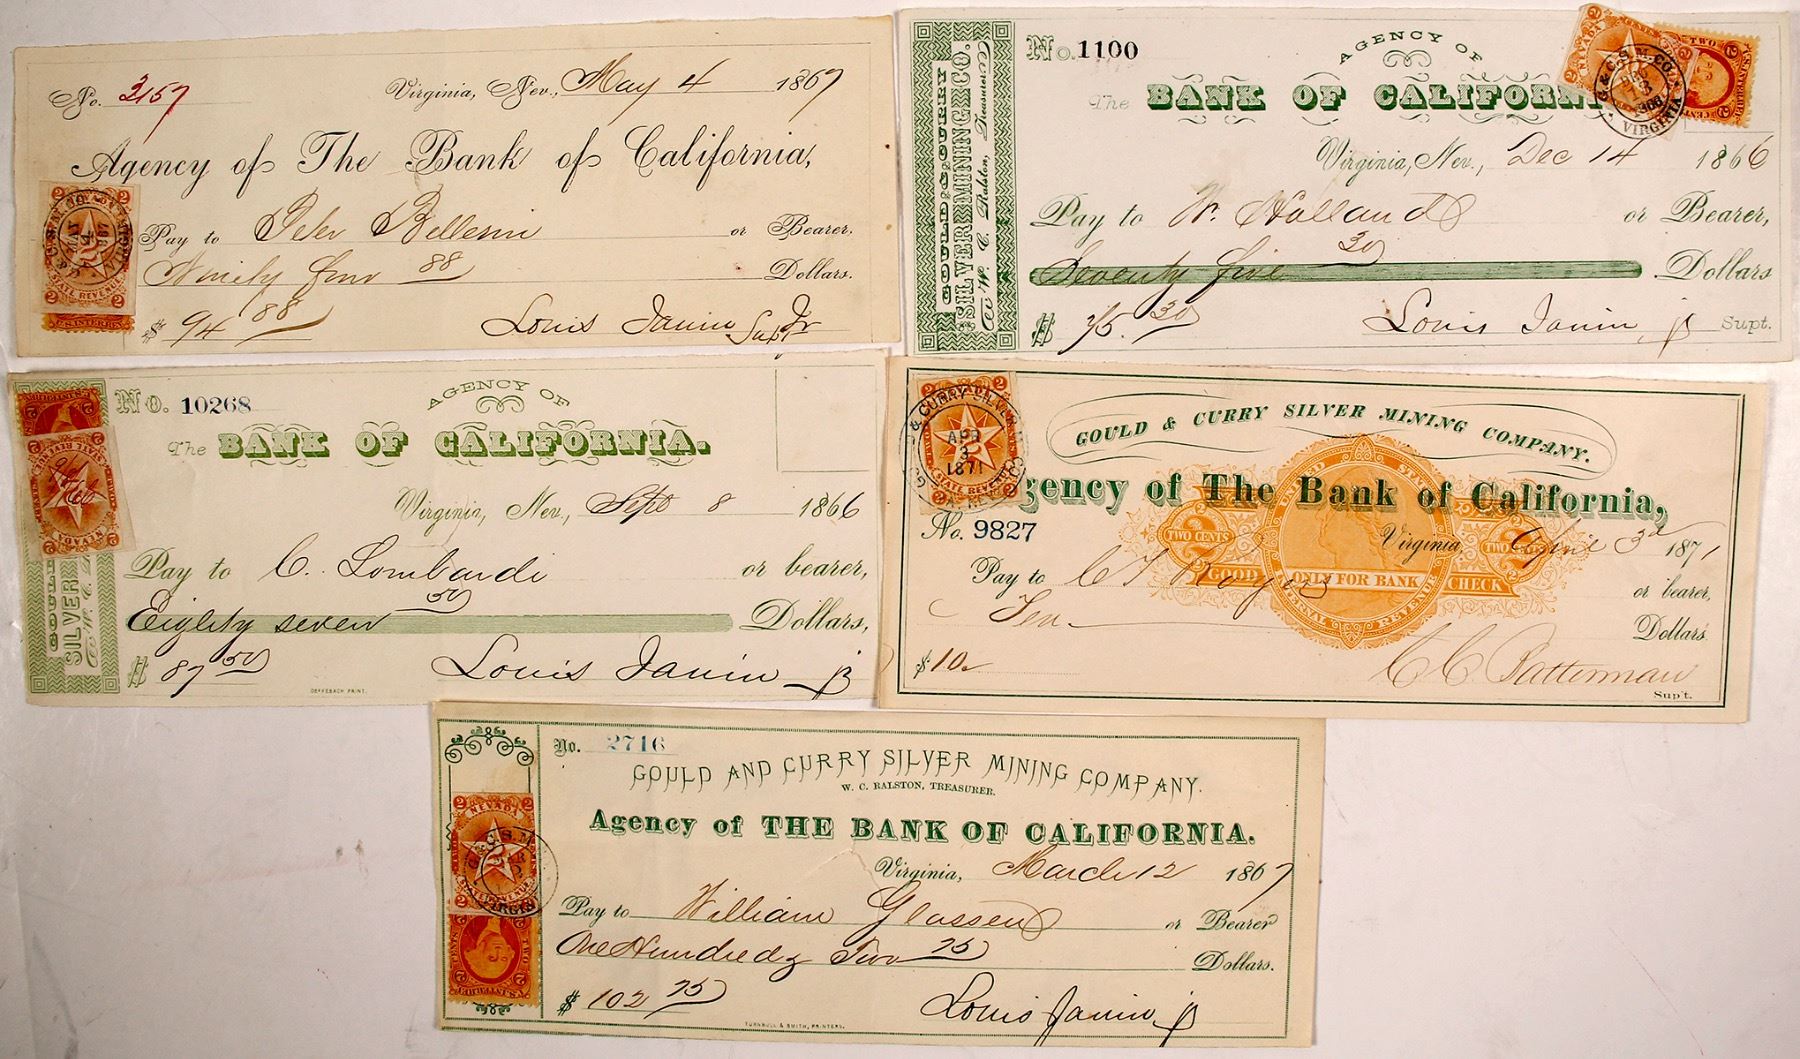 No. 3157
Virginia, Nev., May 4 1867
Agency of The Bank of California,
Pay to Peter Bellerini or Bearer.
Ninety four 88 Dollars.
$ 94 88
Louis Janin Jr
Supt
2 2
STATE REVENUE
2 2
U.S. INTER. REV.
GOULD & CURRY
SILVER MINING CO.
W. C. Ralston, Treasurer
No. 1100
AGENCY OF
The BANK OF CALIFORN
Virginia, Nev., Dec 14 1866
Pay to W. Holland or Bearer,
Seventy five 30 Dollars
$ 75. 30
Louis Janin jr Supt.
NEVADA
G. & C. S. M. CO.
1866
VIRGINIA
TWO
GOULD
SILVER
& W. C.
No. 10268
AGENCY OF
The BANK OF CALIFORNIA.
Virginia, Nev., Sept 8 1866
Pay to C. Lombardi or bearer,
Eighty seven 50 Dollars,
$ 87 50
Louis Janin jr
DEFFEBACH PRINT.
NEVADA
GOULD & CURRY SILVER MINING COMPANY.
gency of The Bank of California,
No. 9827
Virginia, April 3rd 1871
Pay to C T Rogers or bearer,
Ten Dollars
$ 10
C C Batterman
Sup't.
& CURRY SILVER
APR
3
1871
STATE REVENUE
TWO CENTS
TWO CENTS
GOOD ONLY FOR BANK CHECK
INTERNAL REVENUE
No. 2716
GOULD AND CURRY SILVER MINING COMPANY.
W. C. RALSTON, TREASURER.
Agency of THE BANK OF CALIFORNIA.
Virginia, March 12 1867
Pay to William Glassen or Bearer
One Hundred & Two 75 Dollars.
$ 102 75
Louis Janin jr
TURNBULL & SMITH, PRINTERS.
2 NEVADA 2
G. & C. S. M.